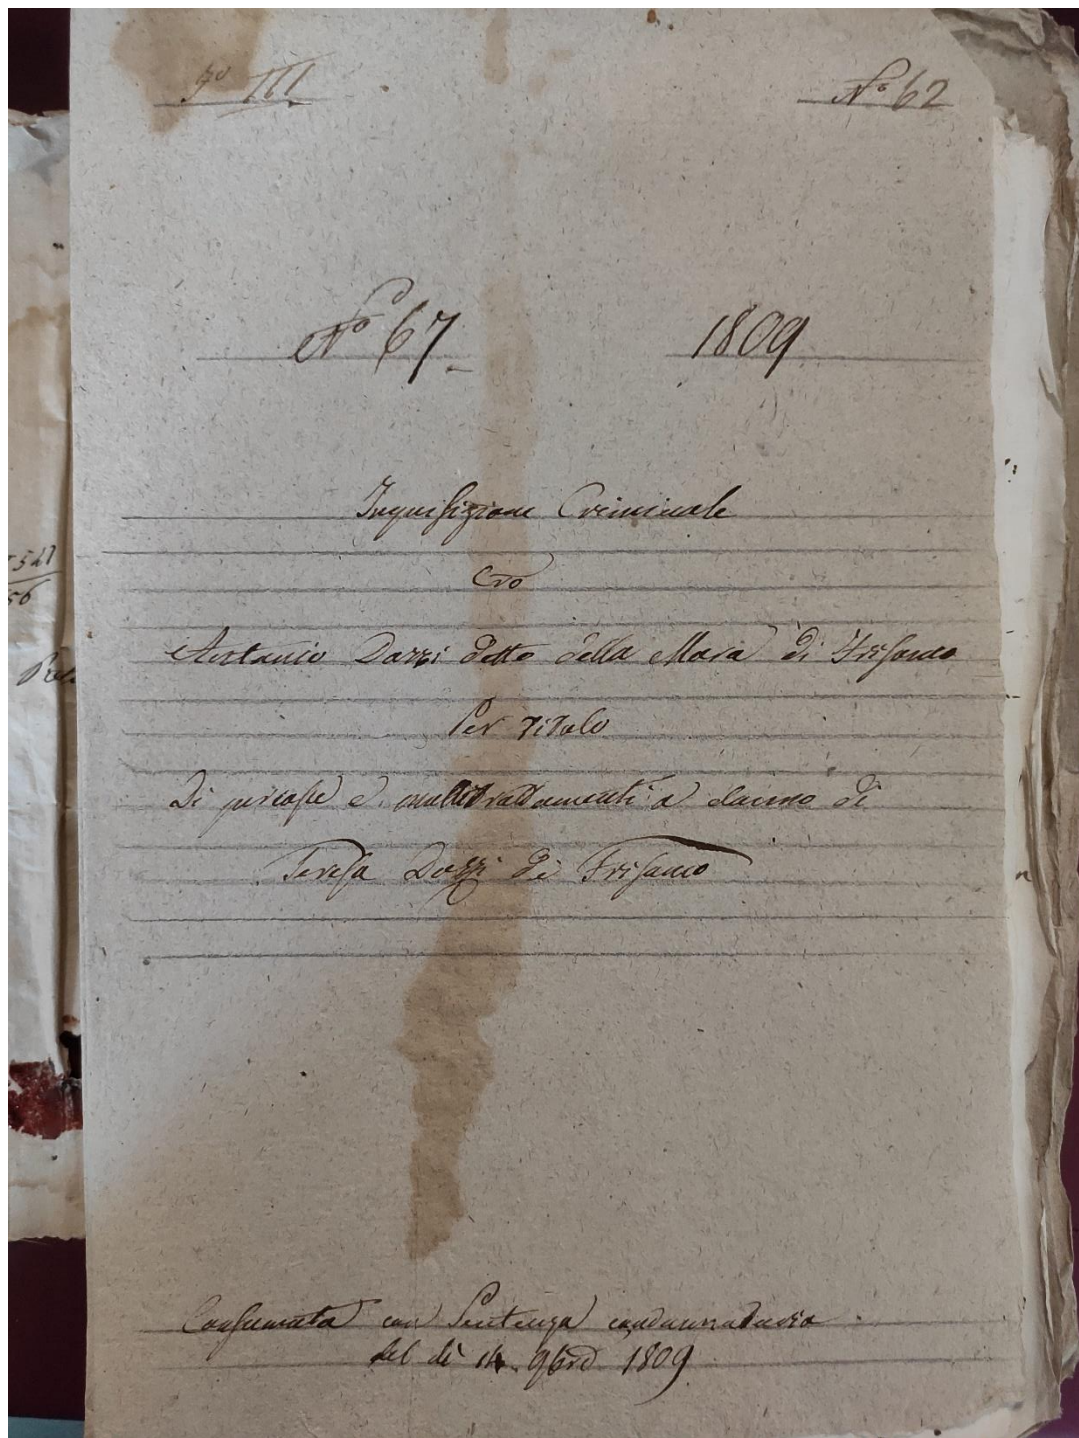 III
N.º 62
N.º 67
1809
Inquisizione Criminale
Cro
Antonio Dazzi detto della Mora di Frisanco
Per titolo
Di percosse e maltrattamenti a danno di
Teresa Dazzi di Frisanco
Consumata con Sentenza condannatoria
del dì 14. 9bre 1809
541
56